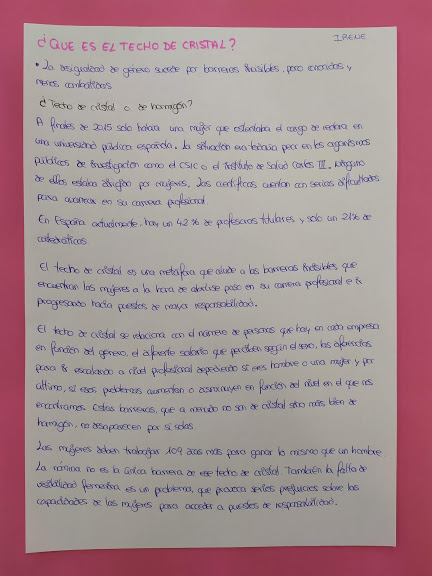 ¿QUE ES EL TECHO DE CRISTAL?
IRENE
• La desigualdad de género sucede por barreras invisibles, poco conocidas y
menos combatidas
¿Techo de cristal o de hormigón?
A finales de 2015 solo había una mujer que ostentaba el cargo de rectora en
una universidad pública española. La situación era todavía peor en los organismos
públicos de investigación como el CSIC o el Instituto de Salud Carlos III. Ninguno
de ellos estaba dirigido por mujeres. Las científicas cuentan con serias dificultades
para avanzar en su carrera profesional
En España actualmente, hay un 42% de profesoras titulares y solo un 21% de
catedráticas
El techo de cristal es una metáfora que alude a las barreras invisibles que
encuentran las mujeres a la hora de abrirse paso en su carrera profesional e ir
progresando hacia puestos de mayor responsabilidad.
El techo de cristal se relaciona con el número de personas que hay en cada empresa
en función del género, el diferente salario que perciben según el sexo, las diferencias
para ir escalando a nivel profesional dependiendo si eres hombre o una mujer y por
último, si esos problemas aumentan o disminuyen en función del nivel en el que nos
encontramos. Estas barreras, que a menudo no son de cristal sino más bien de
hormigón, no desaparecen por si solas
Las mujeres deben trabajar 109 días más para ganar lo mismo que un hombre
La nómina no es la única barrera de ese techo de cristal. También la falta de
visibilidad femenina es un problema, que provoca serios prejuicios sobre las
capacidades de las mujeres para acceder a puestos de responsabilidad.